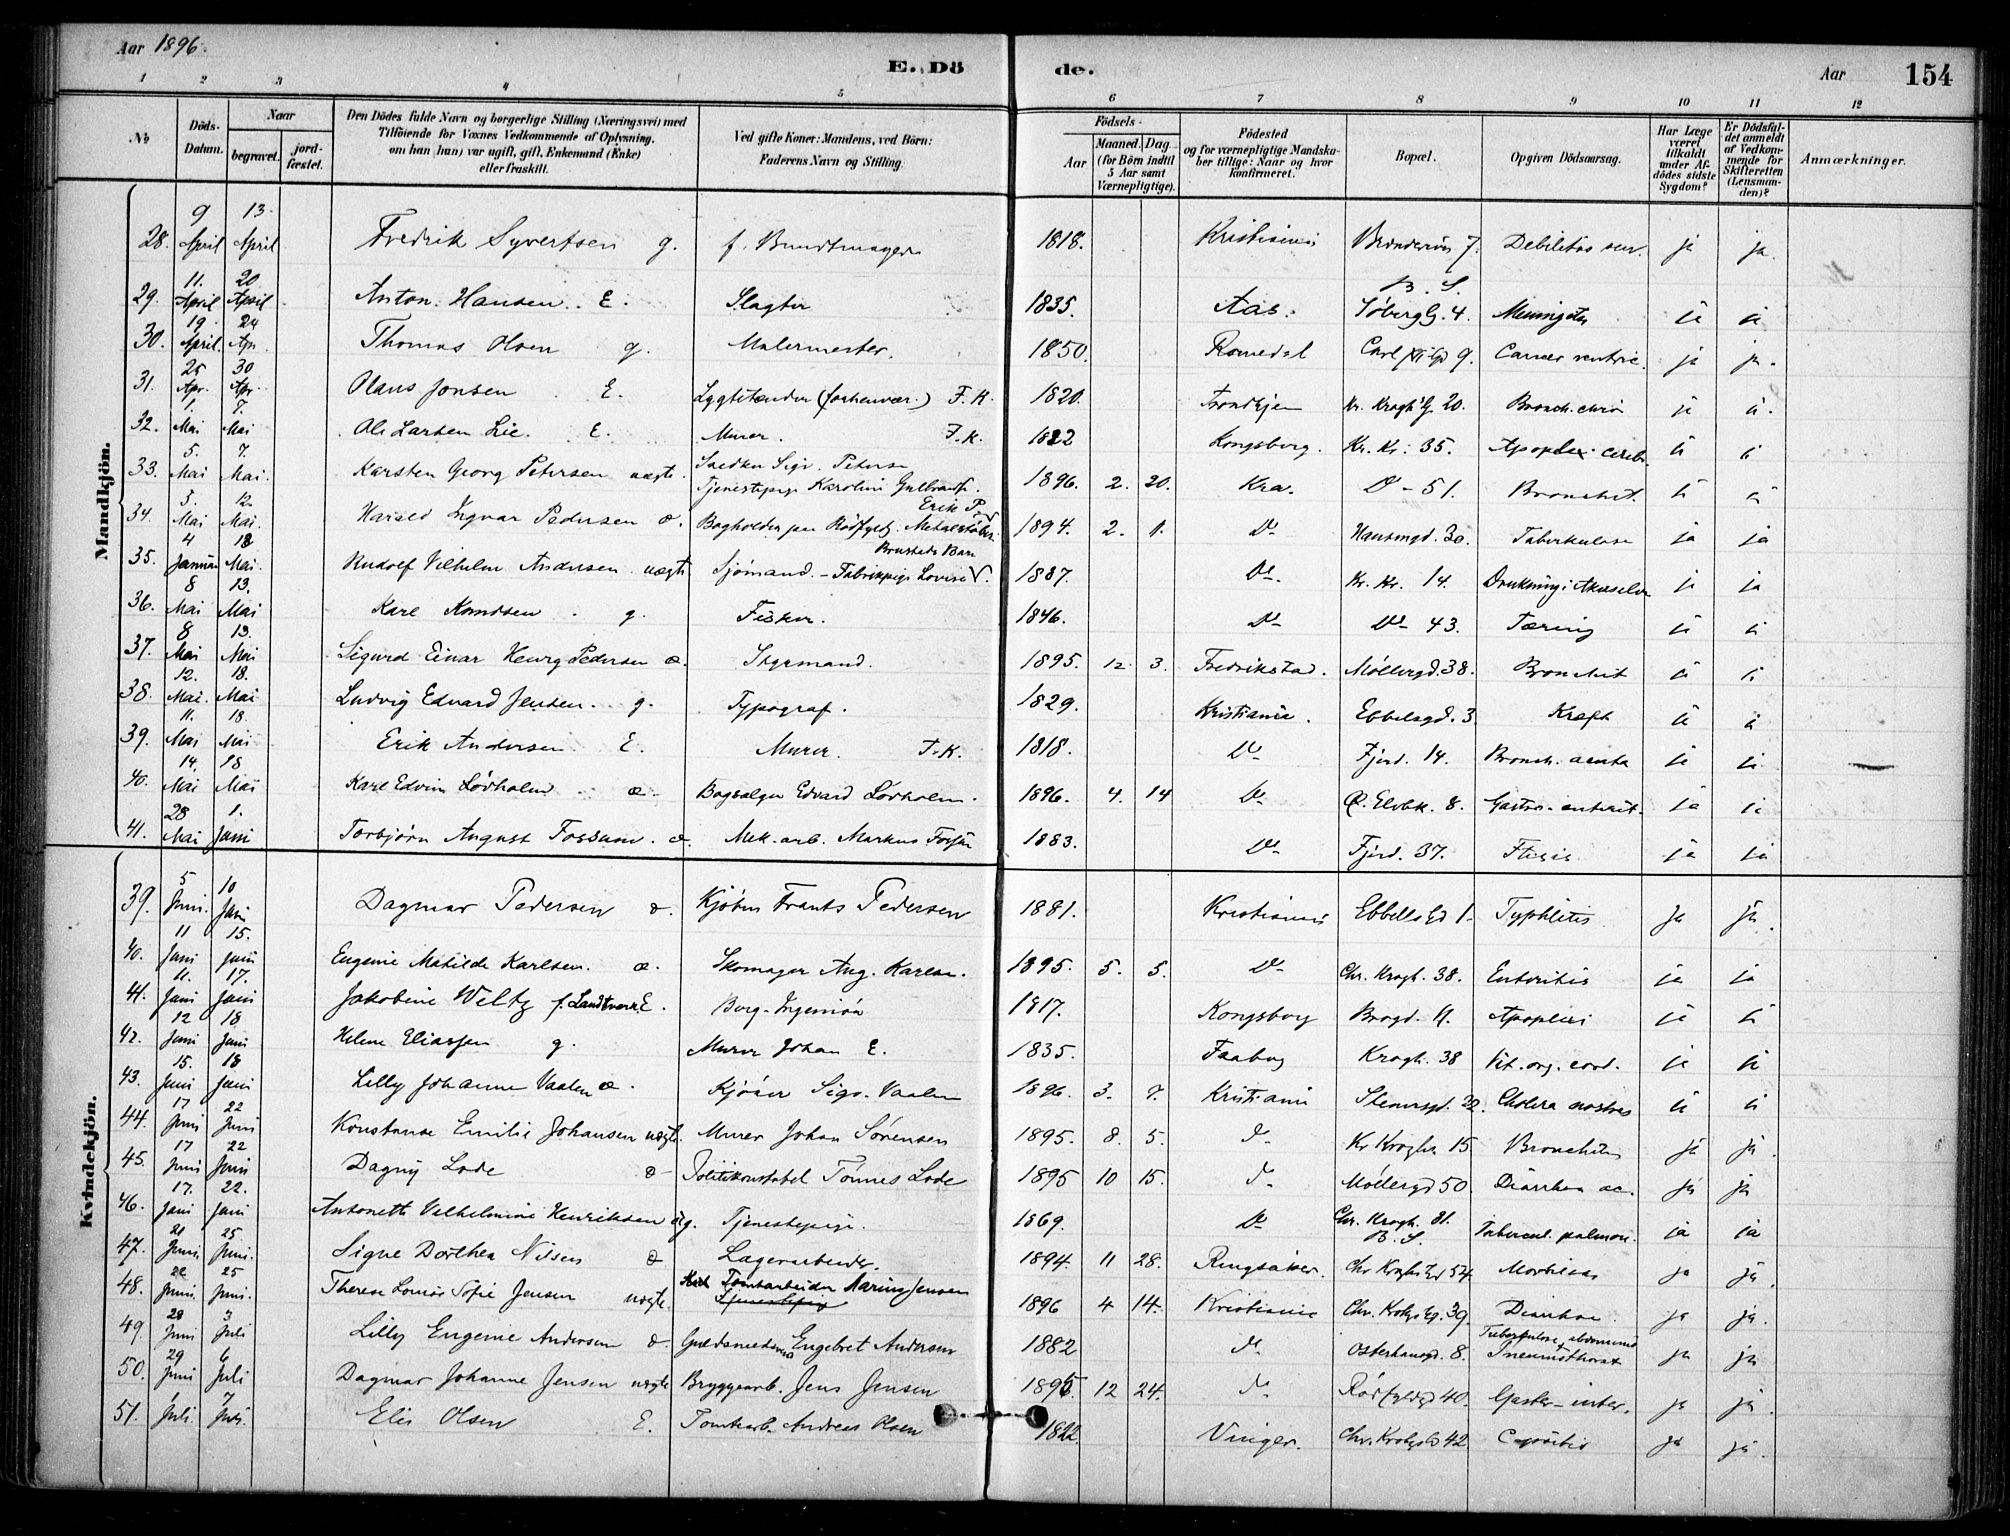 Aar 1896.
E. Dö
de.
Aar
154
1 2 3 4 5 6 7 8 9 10 11 12
No
Döds-Datum.
Naar
begravet.
jord-fæstet.
Den Dödes fulde Navn og borgerlige Stilling (Næringsvei) med
Tilföiende for Voxnes Vedkommende af Oplysning,
om han (hun) var ugift, gift, Enkemand (Enke)
eller fraskilt.
Ved gifte Koner: Mandens, ved Börn:
Faderens Navn og Stilling.
Födsels-
Aar
Maaned. Dag
(for Börn indtil
5 Aar samt
Værnepligtige).
Födested
og for værnepligtige Mandska-
ber tillige: Naar og hvor
konfirmeret.
Bopæl.
Opgiven Dödsaarsag.
Har Læge
været
tilkaldt
under Af-
dödes sidste
Sygdom?
Er Dödsfal-
det anmeldt
af Vedkom-
mende for
Skifteretten
(Lensman-
den)?
Anmærkninger.
Mandkjön.
28. 9 April 13 April Fredrik Syvertsen g. f. Bundtmager 1818. Kristiania 7. Debilitas sen. ja ja.
29. 11. April 20 April Anton Hansen E. Slagter 1835. Aas. B. S. Söbergg. 4. ja ja
30. 19 April 24 Apr. Thomas Olsen g. Malermester. 1850. Romedal Carl 9. Cancer ventric. ja ja.
31. 25 Apr. 30 Apr. Olaus Jonsen E. Lygtetænder (forhenvær.) F. K. 1820. Trondhjem Kr. Kroghs G. 20. Bronch. chron ja ja.
32. 1. Mai 7. Mai Ole Larsen Lie. E. Murer. F. K. 1822 Kongsberg. Kr. Kr: 35. Apoplex. cerebr. ja ja
33. 5. Mai 7. Mai. Karsten Georg Petersen uægte. Snedker Sigv. Peterse Tjenestepige Karoline Gulbrands. 1896. 2. 20. Kra. Do - 51. Bronchit. ja ja
34. 5. Mai 12 Mai. Harald Ingvar Pedersen æ. Bogholder Erik P. 1894. 2. 1. Do Hausmgd. 30. Tuberkulose ja ja
35. 4 Januar 12 Mai. Rudolf Vilhelm Andersen uægte Sjömand. - Fabrikpige Lovise 1887. Do. Kr. Kr. 14. Drukning i Akerselven ja ja
36. 8 Mai 13. Mai Karl Knudsen g. Fisker. 1846. Do Do 43. Tæring ja ja
37. 8 Mai 13. Mai Sigurd Einar Henry Pedersen æ. Styrmand. 1895. 12 3. Fredrikstad. Möllergd. 38. Bronchit ja ja
38. 12. Mai. 18. Mai Ludvig Edvard Jensen. g. Typograf. 1829. Kristiania. Ebbelsgd. 3 Kræft ja ja
39. 11. Mai 18. Mai Erik Andersen E. Murer. F. K. 1818. Do Fjerd. 14. Bronch. acuta ja ja
40. 14. Mai 18 Mai Karl Edvin Lövholm æ. Bogsælger Edvard Lövholm. 1896. 4. 14 Do Ø. Elvbk. 8. Gastro-enterit. ja ja
41. 28 Mai 1. Juni Torbjörn August Fossum. æ. Mek. arb. Markus Fossum 1883. Do Fjerd. 37. Ftisis ja ja
Kvindekjön.
39. 5 Juni. 10 Juni Dagmar Pedersen æ. Kjöbm Frants Pedersen 1881. Kristiania Ebbells Gd 1. Typhlitis ja ja.
40. 11 Juni 15. juni Eugenie Matilde Karlsen. æ. Skomager Aug. Karlsen. 1895. 5. 5. Do Chr. Krogh. 38. Enteritis ja ja
41. 11. Juni 17. Juni Jakobine Weltz f. Landtverk E. Berg-Ingeniör 1817. Kongsberg Brogd. 11. Apoplexi ja ja
42. 12 Juni 18 Juni Helene Eliassen g. Murer Johan E. 1835. Faaberg Krogh. 38 Vit. org. cord. ja ja
43. 15. Juni 18 Juni Lilly Johanne Vaalen æ. Kjörer Sigv. Vaalen 1896. 3. 7. Kristiania Stenersgd. 22. Cholera nostras ja ja
44. 17 Juni 22 Juni Konstanse Emilie Johansen uægte. Murer Johan Sörensen 1895. 8. 5. Do Kr Kroghs 15. Bronchitis ja ja.
45. 17 Juni 22 Juni Dagny Lode æ Politikonstabel Tönnes Lode 1895 10 15. Do Möllergd 50. Diarrhea ac. ja ja
46. 17. Juni 22. Juni Antonette Vilhelmine Henriksen ug. Tjenestepige. 1869. Do Chr. Krogh. 31. B. S. Tubercul. pulmon. ja ja
47. 21 Juni 25 Juni. Signe Dorthea Nilsen æ Lagerarbeider. 1894. 11 28. Ringsaker. Chr Kroghs Gd 54. Morbilli ja ja.
48. 22 Juni 25 Juni. Therese Sofie Jensen uægte. Tomtarbeider Marius Jensen 1896 4 14. Kristiania Chr. Kroghs Gd. 39. Diarrhoe. ja ja.
49. 28 Juni 3 Juli Lilly Eugenie Andersen æ Guldsmedsvend Engebret Andersen 1882 Do Osterhausgd. 8. Tuberkulose abdominis + Pneumothorax ja ja
50. 29 Juni 6 Juli Dagmar Johanne Jensen uægte Bryggearb. Jens Jensen 1895. 12 24. Do Rödfyldgd 40. Gaster-inter. ja ja.
51. 1 Juli. 7 Juli. Elis Olsen E. Tomtearb. Andreas Olsen 1822. Vinger. Chr. Kroghs Gd 42. ja ja.